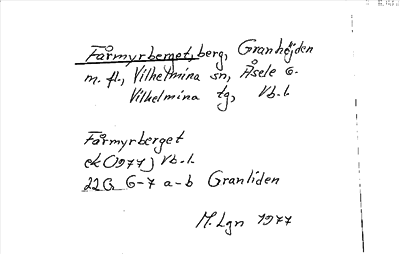 Fårmyrberget, berg, Granhöjden
m. fl., Vilhelmina sn, Åsele G.
Vilhelmina tg, Vb.l.
Fårmyrberget
ek (1977) Vb.l.
22G 6-7 a-b Granliden
M. Lgn 1977